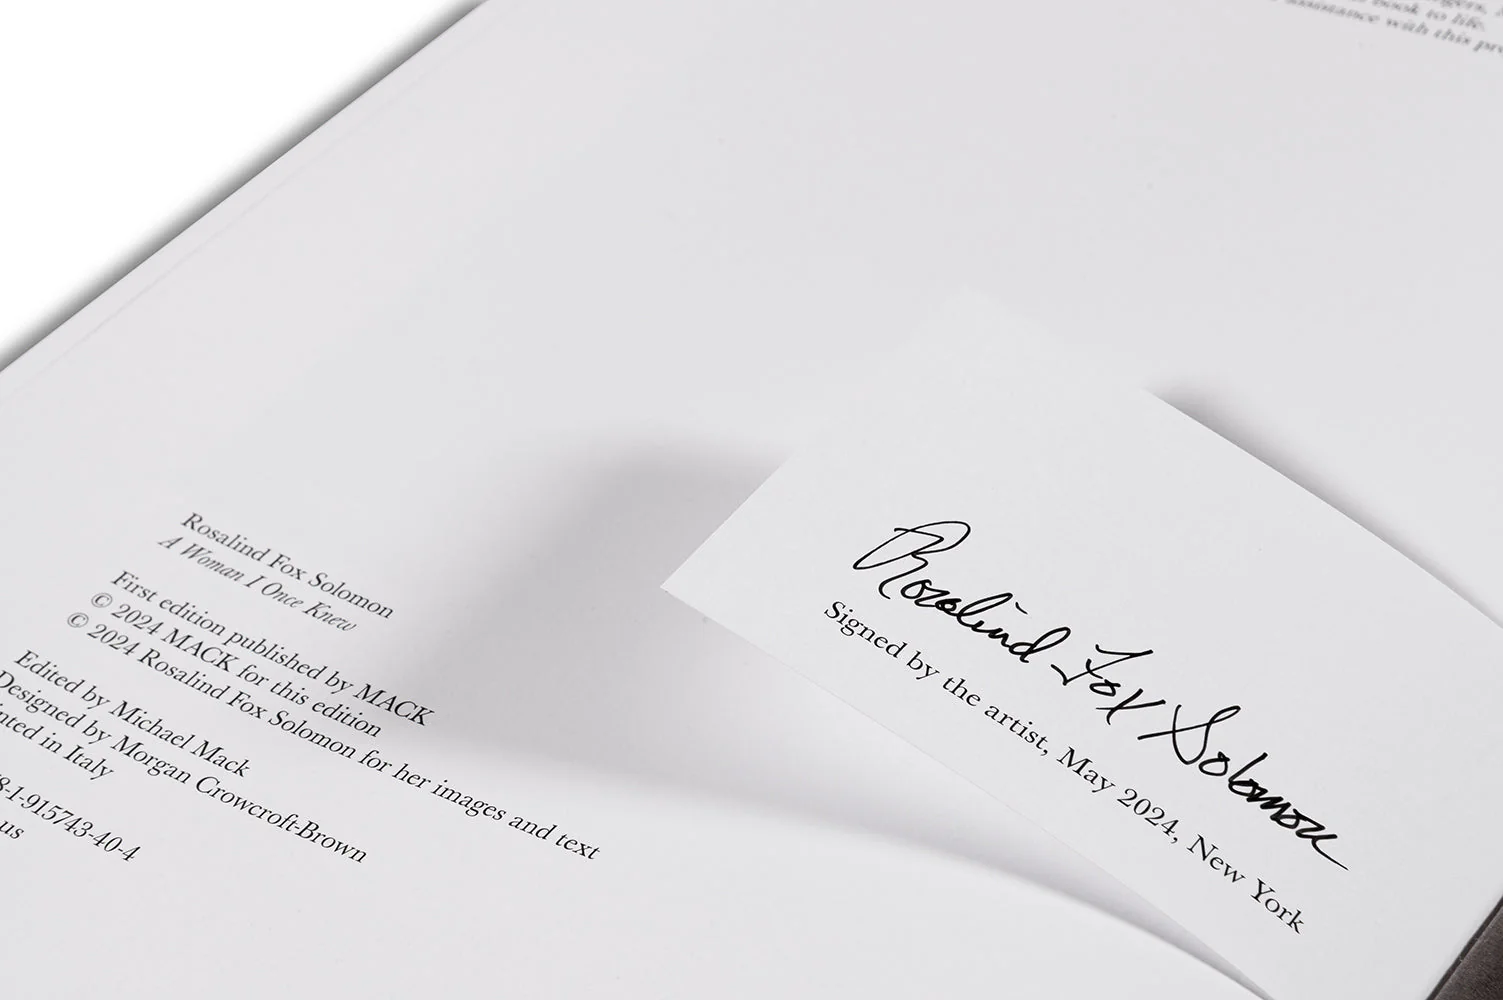 book to life.
assistance with this
Rosalind Fox Solomon
A Woman I Once Knew
First edition published by MACK
© 2024 MACK for this edition
© 2024 Rosalind Fox Solomon for her images and text
Edited by Michael Mack
Designed by Morgan Crowcroft-Brown
in Italy
8-1-915743-40-4
us
Rosalind Fox Solomon
Signed by the artist, May 2024, New York